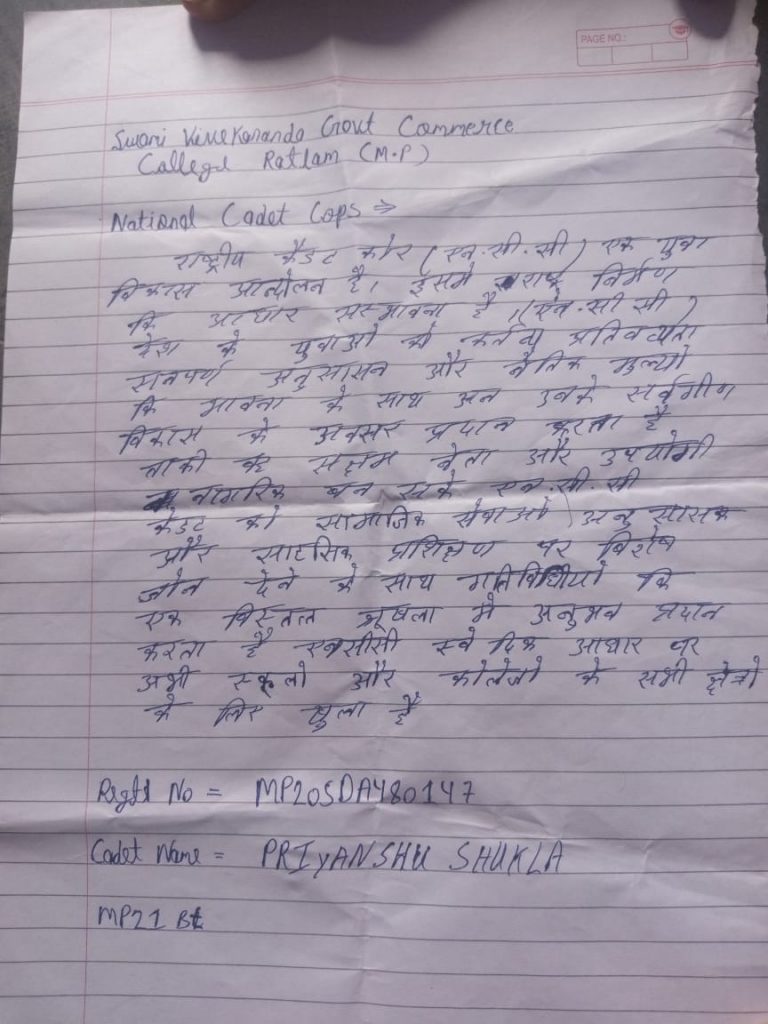 PAGE NO.:
Swami Vivekananda Govt Commerce
College Ratlam (M.P)
National Cadet Cops ⇒
राष्ट्रीय कैडट कोर (एन.सी.सी) एक युवा
विकास आन्दोलन है। इसमे राष्ट्र निर्माण
कि आधार सम्भावना है। (एन.सी.सी)
देश के युवाओ को कर्तव्य प्रतिबध्यता
सनपर्ण अनुसासन और नैतिक मुल्यो
कि भावना के साथ उनके सर्वगीण
विकास के अवसर प्रदान करता है
ताकी वह सक्षम नेता और उपयोगी
नागरिक बन सके एन.सी.सी
केडट को सामाजिक सेवाओ अनुसासक
और साहसिक प्रशिक्षण पर विशेष
जोन देने के साथ गतिविधीयो कि
एक विस्तत श्रृखला मे अनुभव प्रदान
करता है एनसीसी स्वे दिक आधार पर
अभी स्कूलो और कोलेजो के सभी क्षेत्रो
के लिए खुला है
Regtd No = MP20SDA480147
Cadet Name = PRIYANSHU SHUKLA
MP21 Bt